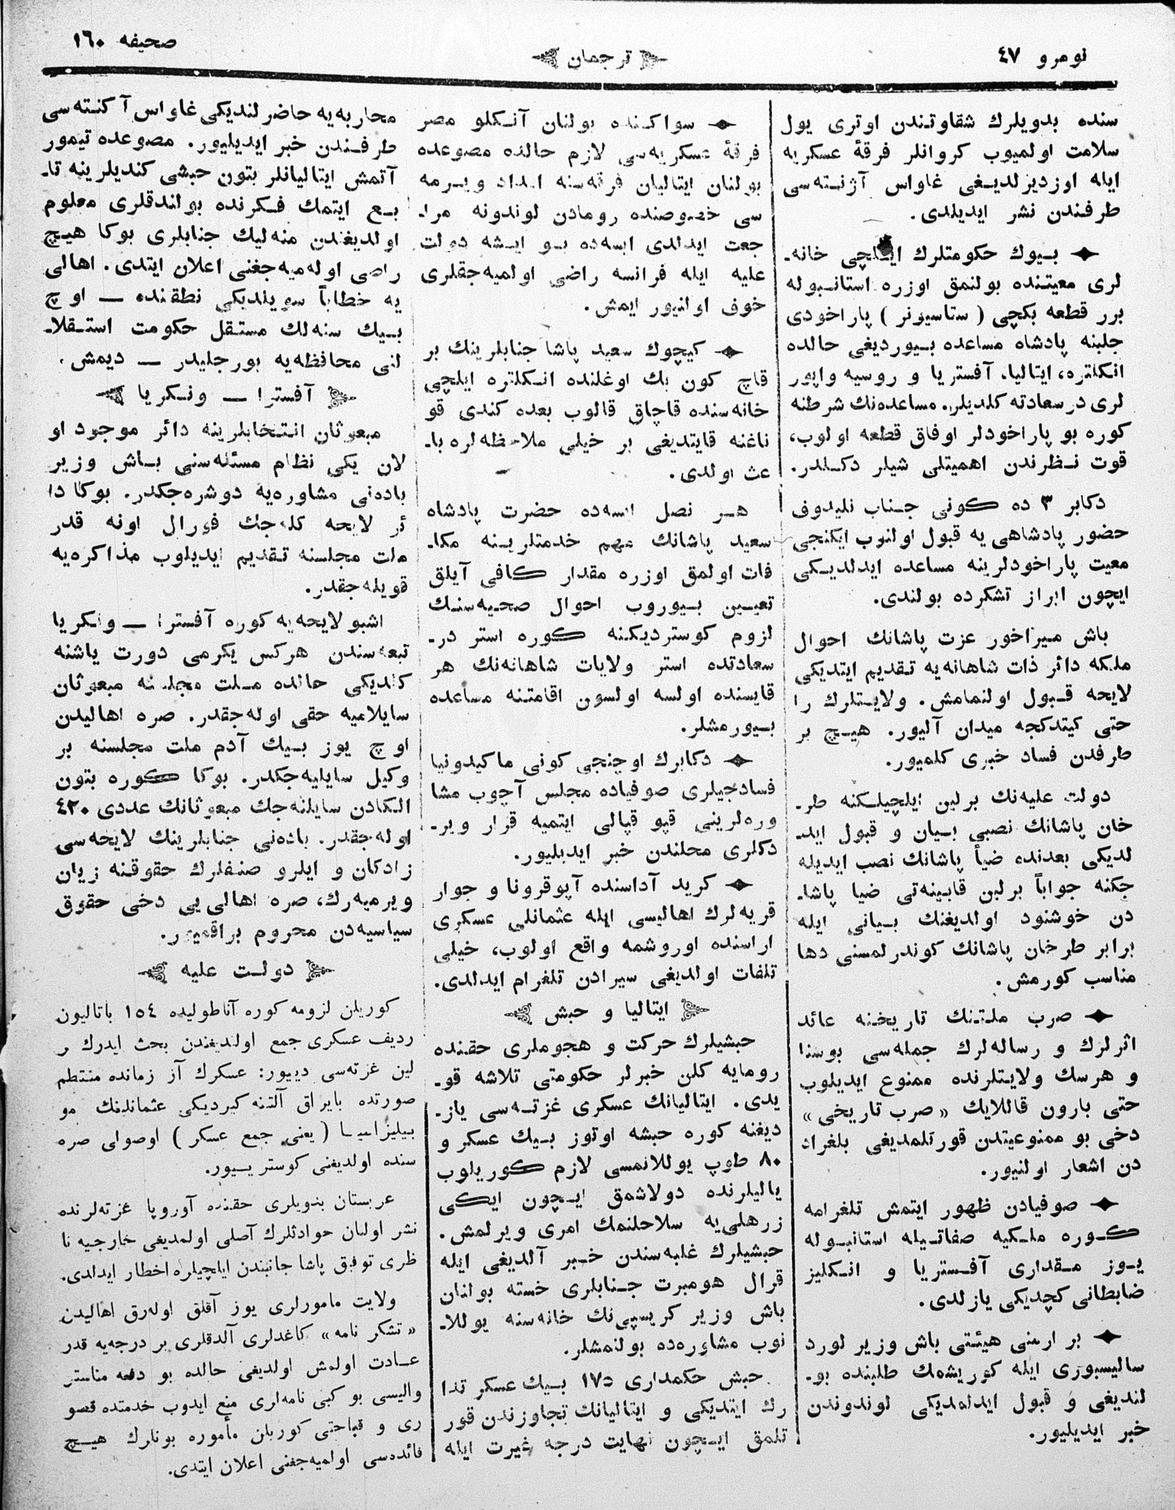 نومرو ٤٧
ترجمان
صحیفه ١٦٠
سنده بدویلرك شقاوتندن اوتری یول
سلامت اولمیوب كروانلر فرقهٔ عسكریه
ایله اوزدیرلدیغی غاواس آژنته‌سی
طرفندن نشر ایدیلدی.
بیوك حكومتلرك ایلچی خانه‌ـ
لری معیتنده بولنمق اوزره استانبوله
برر قطعه بكچی (ستاسیونر) پاراخودی
جلبنه پادشاه مساعده بیوردیغی حالده
انكلتره، ایتالیا، آفستریا و روسیه واپور
لری درسعادته كلدیلر. مساعده‌نك شرطنه
كوره بو پاراخودلر اوفاق قطعه اولوب،
قوت نظرندن اهمیتلی شیلر دكلدر.
دكابر ٣ ده كونی جناب نلیدوف
حضور پادشاهی یه قبول اولنوب ایكنجی
معیت پاراخودلرینه مساعده ایدلدیكی
ایچون ابراز تشكرده بولندی.
باش میراخور عزت پاشانك احوال
ملكه دائر ذات شاهانه‌یه تقدیم ایتدیكی
لایحه قبول اولنمامش. ولایتلرك را
حتی كیتدكجه میدان آلیور. هیچ بر
طرفدن فساد خبری كلمیور.
دولت علیه‌نك برلین ایلچیلكنه طر‌ـ
خان پاشانك نصبی بیان و قبول اید‌ـ
لدیكی بعدنده ضیأ پاشانك نصب ایدیله
جكنه جواباً برلین قابینه‌تی ضیا پاشا‌ـ
دن خوشنود اولدیغنك بیانی ایله
برابر طرخان پاشانك كوندرلمسنی دها
مناسب كورمش.
صرب ملتنك تاریخنه عائد
اثرلرك و رساله‌لرك جمله‌سی بوسنا
و هرسك ولایتلرنده ممنوع ایدیلوب
حتی بارون قاللایك «صرب تاریخی»
دخی بو ممنوعیتدن قورتلمدیغی بلغراد
دن اشعار اولنیور.
صوفیادن ظهور ایتمش تلغرامه
كوره ملكیه صفاتیله استانبوله
یوز مقداری آفستریا و انكلیز
ضابطانی كچدیكی یازلدی.
بر ارمنی هیئتی باش وزیر لورد
سالیسبوری ایله كوریشمك طلبنده بو‌ـ
لندیغی و قبول ایدلمدیكی لوندوندن
خبر ایدیلیور.
سواكنده بولنان آنكلو مصر
فرقهٔ عسكریه‌سی لازم حالده مصوعده
بولنان ایتالیان فرقه‌سنه امداد ویرمه
سی خصوصنده رومادن لوندونه مرا‌ـ
جعت ایدلدی ایسه‌ده بو ایشه دولت
علیه ایله فرانسه راضی اولمیه‌جقلری
خوف اولنیور ایمش.
كیچوك سعید پاشا جنابلرینك بر
قاچ كون بك اوغلنده انكلتره ایلچی
خانه‌سنده قاچاق قالوب بعده كندی قو
ناغنه قایتدیغی بر خیلی ملاحظه‌لره با‌ـ
عث اولدی.
هر نصل ایسه‌ده حضرت پادشاه
سعید پاشانك مهم خدمتلرینه مكا‌ـ
فات اولمق اوزره مقدار كافی آیلق
تعیین بیوروب احوال صحیه‌سنك
لزوم كوستردیكنه كوره استر در‌ـ
سعادتده استر ولایات شاهانه‌نك هر
قایسنده اولسه اولسون اقامتنه مساعده
بیورمشلر.
دكابرك اوچنجی كونی ماكیدونیا
فسادجیلری صوفیاده مجلس آچوب مشا
وره‌لرینی قپو قپالی ایتمیه قرار ویر‌ـ
دكلری محلندن خبر ایدیلیور.
كرید آداسنده آپوقرونا و جوار
قریه‌لرك اهالیسی ایله عثمانلی عسكری
اراسنده اوروشمه واقع اولوب، خیلی
تلفات اولدیغی سیرادن تلغرام ایدلدی.
ایتالیا و حبش
حبشیلرك حركت و هجوملری حقنده
رومایه كلن خبرلر حكومتی تلاشه قو‌ـ
یدی. ایتالیانك عسكری غزته‌سی یاز‌ـ
دیغنه كوره حبشه اوتوز بیك عسكر و
٨٠ طوپ یوللانمسی لازم كوریلوب
یالیلرنده دولاشمق ایچون ایكی
زرهلی‌یه سلاحلنمك امری ویرلمش.
حبشیلرك غلبه‌سندن خبر آلدیغی ایله
قرال هومبرت جنابلری خسته بولنان
باش وزیر كریسپی‌نك خانه‌سنه یوللا‌ـ
نوب مشاوره‌ده بولنمشلر.
حبش حكمداری ١٧٥ بیك عسكر تدا
رك ایتدیكی و ایتالیانك تجاوزندن قور
تلمق ایچون نهایت درجه غیرت ایله
محاربه‌یه حاضرلندیكی غاواس آكنته‌سی
طرفندن خبر ایدیلیور. مصوعده تیمور
آتمش ایتالیانلر بتون حبشی كندیلرینه تا‌ـ
بع ایتمك فكرنده بولندقلری معلوم
اولدیغندن منه‌لیك جنابلری بوكا هیچ
راضی اوله‌میه‌جغنی اعلان ایتدی. اهالی
یه خطاباً سویلدیكی نطقنده — اوچ
بیك سنه‌لك مستقل حكومت استقلا‌ـ
لنی محافظه‌یه بورجلیدر — دیمش.
آفستریا — ونكریا
مبعوثان انتخابلرینه دائر موجود او
لان یكی نظام مسئله‌سنی باش وزیر
باده‌نی مشاوره‌یه دوشره‌جكدر. بوكا دا
ئر لایحه كله‌جك فورال اونه قدر
ملت مجلسنه تقدیم ایدیلوب مذاكره‌یه
قویله‌جقدر.
اشبو لایحه‌یه كوره آفستریا — ونكریا
تبعه‌سندن هركس یكرمی دورت یاشنه
كلدیكی حالده ملت مجلسنه مبعوثان
سایلامیه حقی اوله‌جقدر. صره اهالیدن
اوچ یوز بیك آدم ملت مجلسنه بر
وكیل سایلیه‌جكدر. بوكا كوره بتون
الكادن سایلنه‌جك مبعوثانك عددی ٤٢٠
اوله‌جقدر. باده‌نی جنابلرینك لایحه‌سی
زادكان و ایلرو صنفلرك حقوقنه زیان
ویرمیه‌رك، صره اهالی‌یی دخی حقوق
سیاسیه‌دن محروم براقمیور.
دولت علیه
كوریلن لزومه كوره آناطولیده ١٥٤ باتالیون
ردیف عسكری جمع اولدیغندن بحث ایدرك ر
لین غزته‌سی دییور: عسكرك آز زمانده منتظم
صورتده بایراق آلتنه كیردیكی عثمانلینك مو
بیلیزاسیا (یعنی جمع عسكر) اوصولی صره
سنده اولدیغنی كوستریور.
عربستان بدویلری حقنده آوروپا غزته‌لرنده
نشر اولنان حوادثلرك آصلی اولمدیغی خارجیه نا
ظری توفیق پاشا جانبندن ایلچیلره اخطار ایدلدی.
ولایت مامورلری یوز آقلق اوله‌رق اهالیدن
«تشكر نامه» كاغدلری آلدقلری بر درجه‌یه قدر
عادت اولمش اولدیغی حالده بو دفعه مناستر
والیسی بو كبی نامه‌لری منع ایدوب خدمتده قصو
ری و قباحتی كوریلن مأموره بونلرك هیچ
فائده‌سی اولمیه‌جغنی اعلان ایتدی.